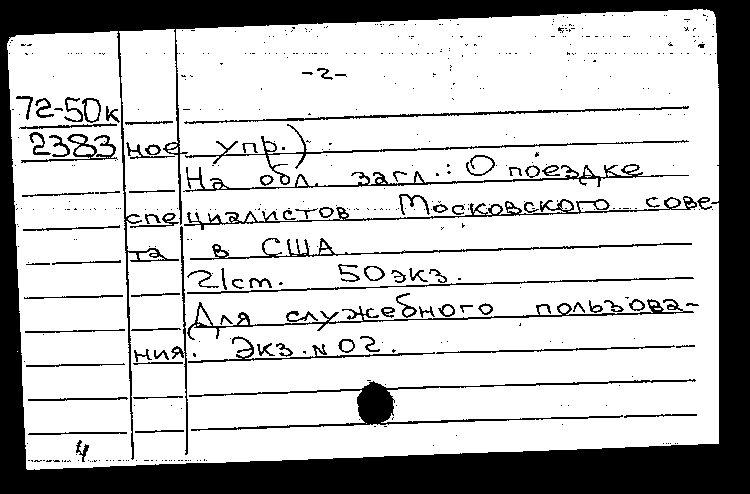 -2-
72-50к
2383 ное упр.)
На обл. загл.: О поездке
специалистов Московского сове-
та в США.
21 ст. 50 экз.
Для служебного пользова-
ния. Экз. N 02.
4